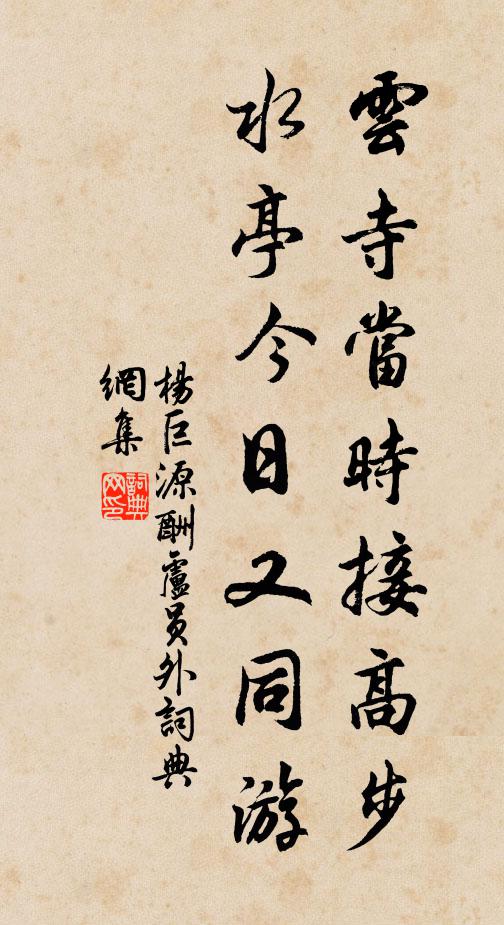 雲寺當時接高步
水亭今日又同游
楊巨源酬盧員外詞典
網集
詞典
网印